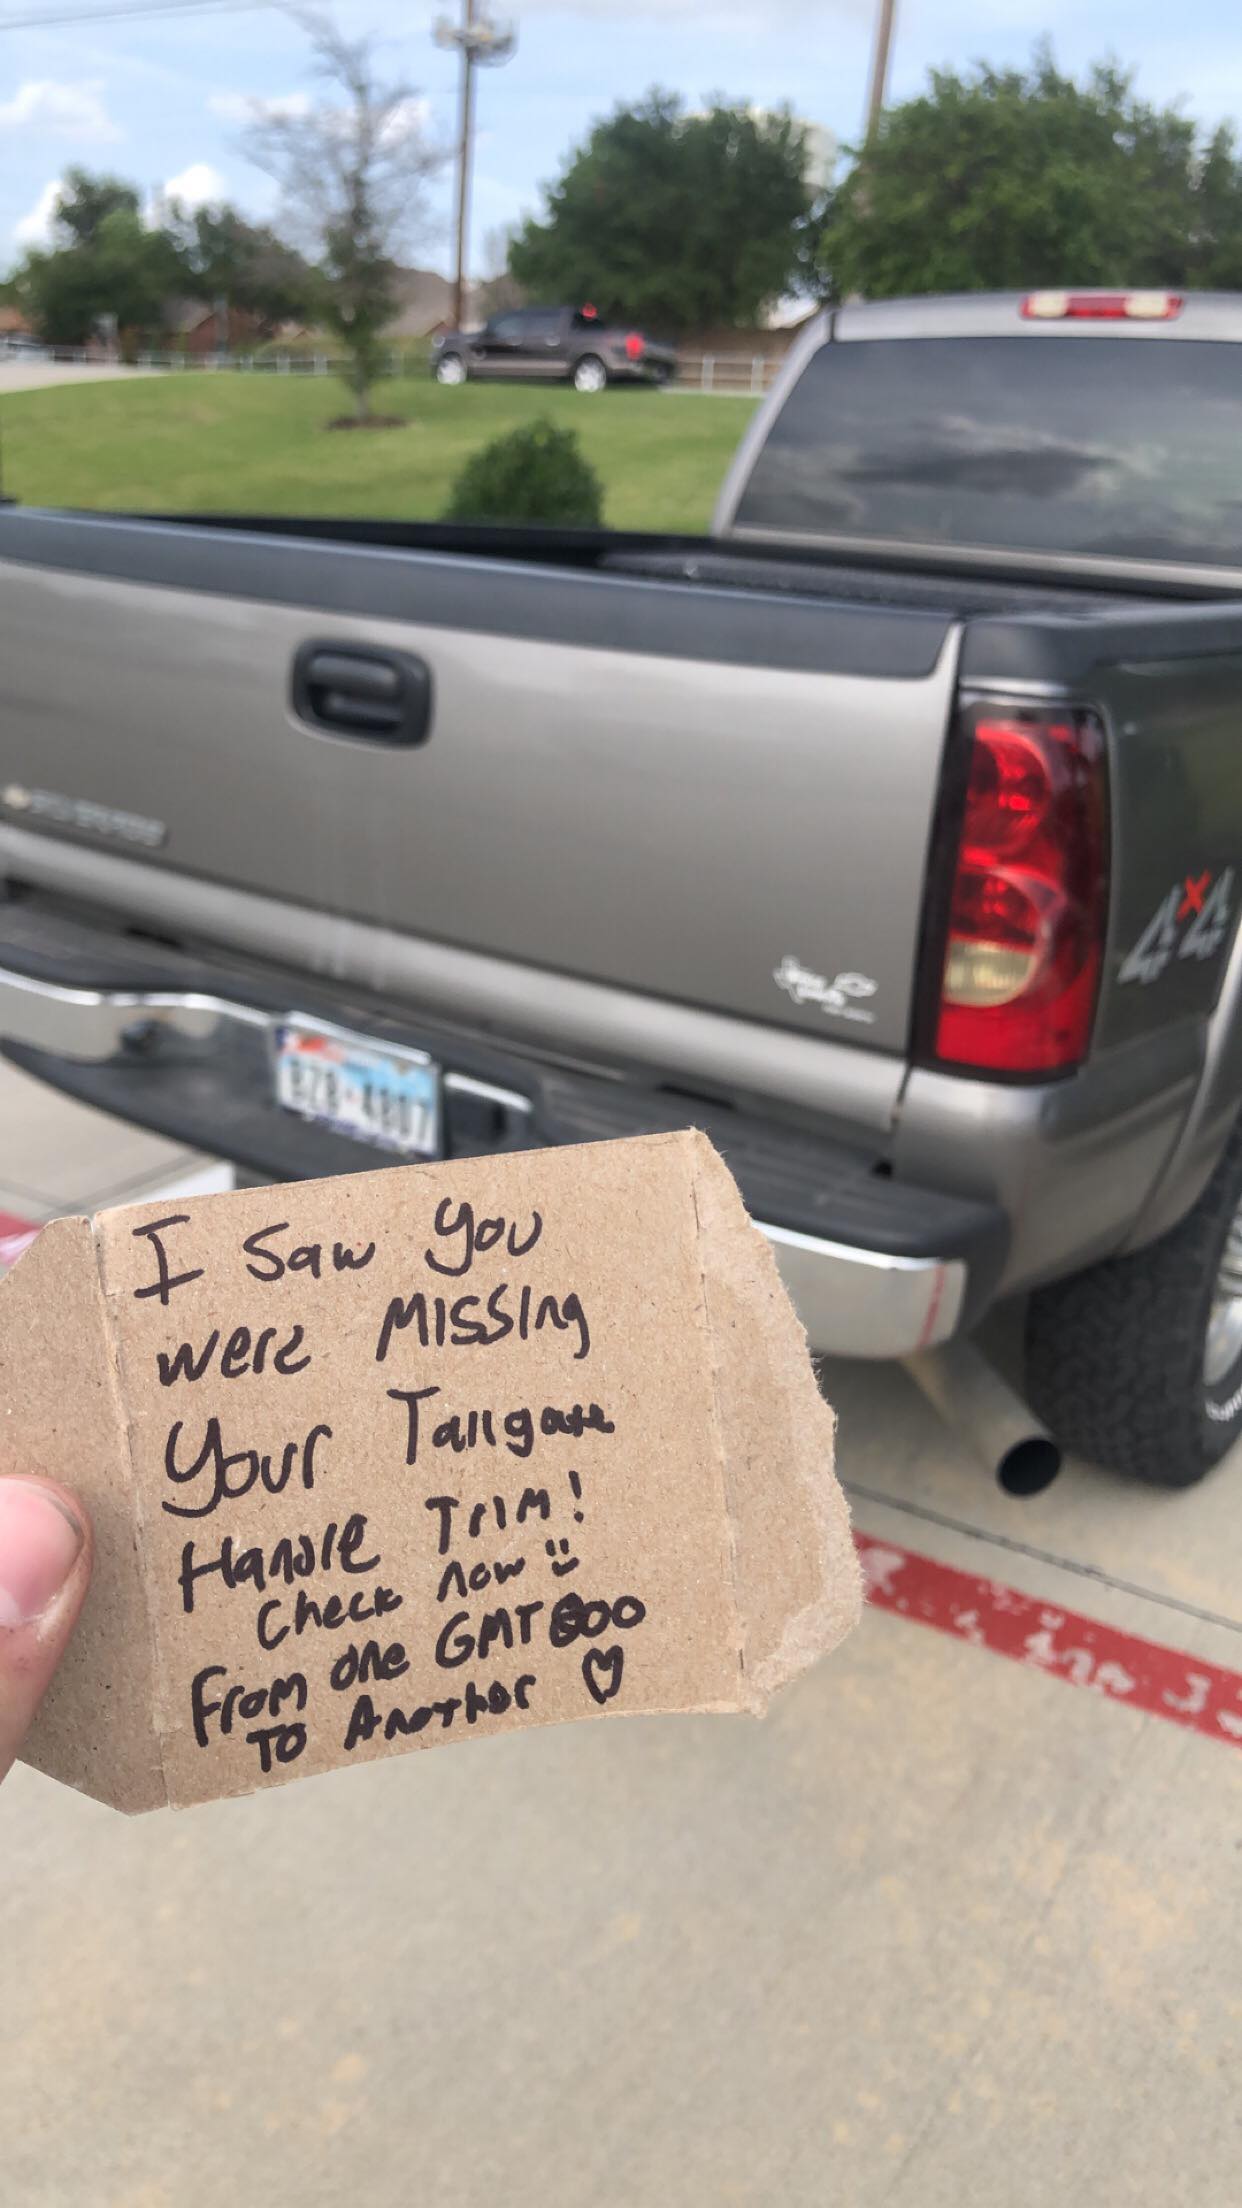 4x4
BZB★4807
I Saw You
were Missing
Your Tailgate
Handle Trim!
Check now
From one GMT800
To Another